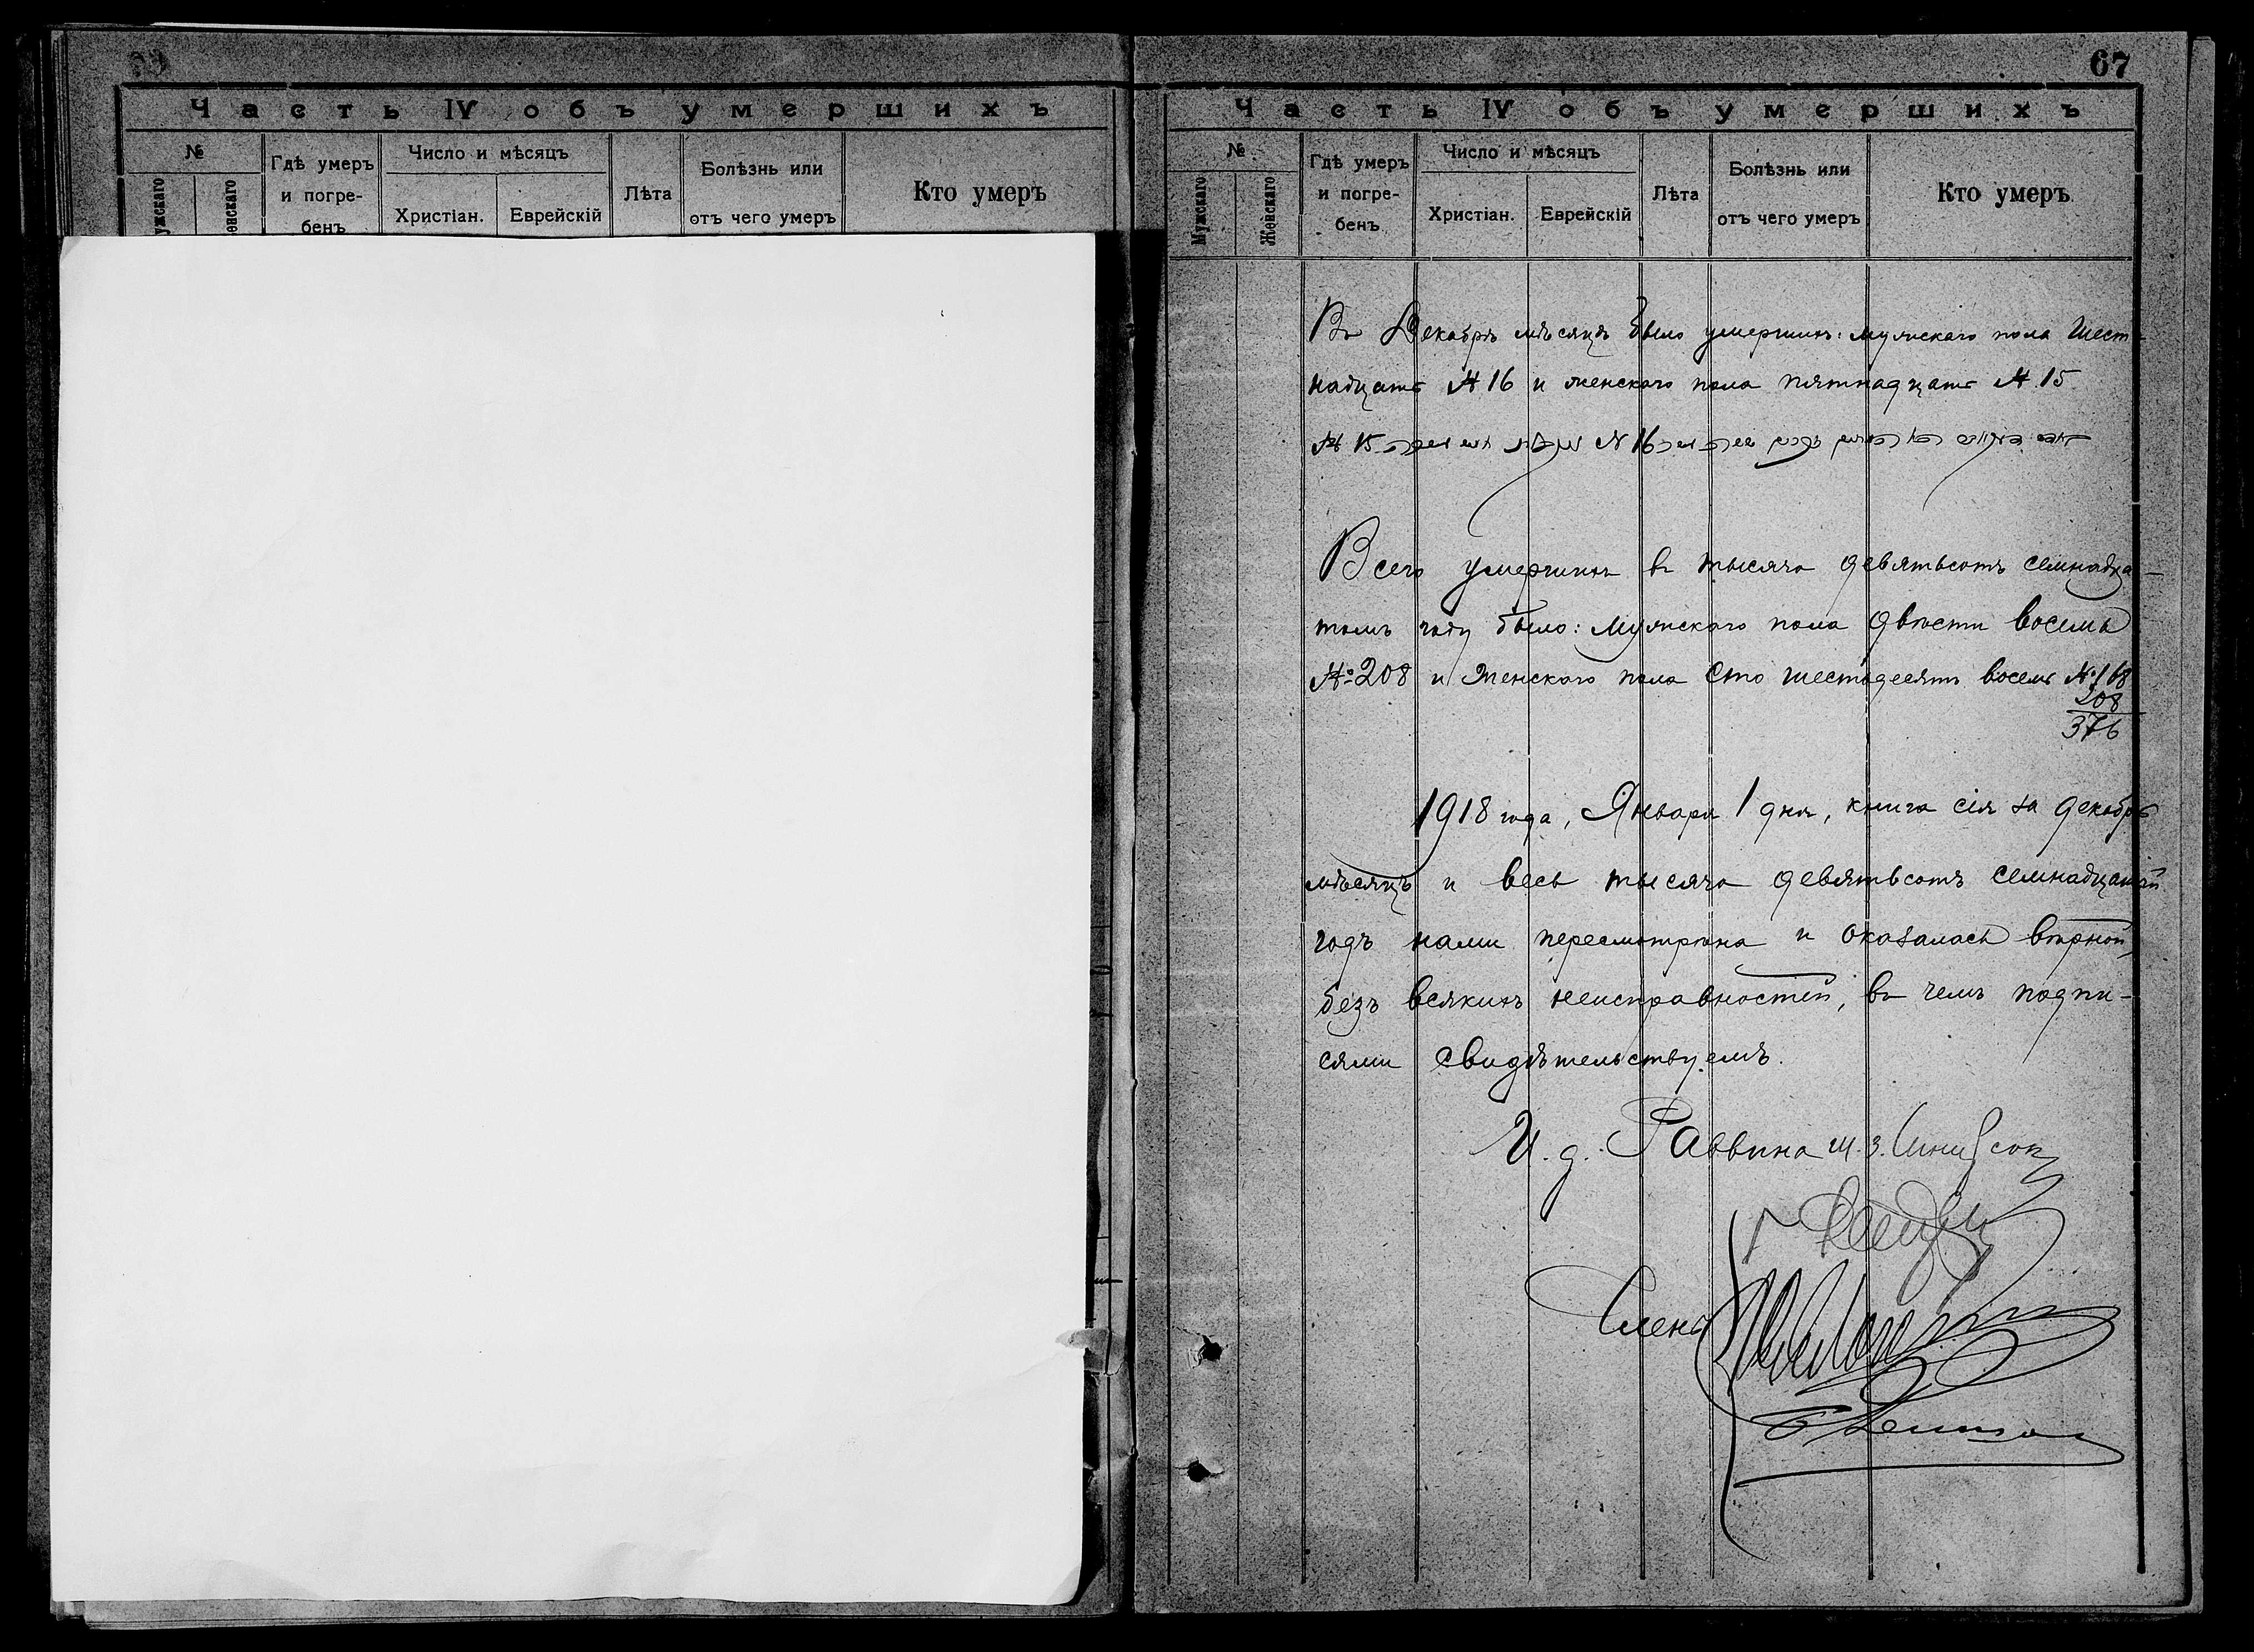 Часть IV объ умершихъ
№
Гдѣ умеръ и погребенъ
Число и мѣсяцъ
Христіан.
Еврейскій
Лѣта
Болѣзнь или отъ чего умеръ
Кто умеръ
67
Часть IV объ умершихъ
№
Мужскаго
Женскаго
Гдѣ умеръ
и погре-
бенъ
Число и мѣсяцъ
Христіан.
Еврейскій
Лѣта
Болѣзнь или
отъ чего умеръ
Кто умеръ
Въ Декабрѣ мѣсяцѣ было умершихъ: мужского пола шест-
надцать № 16 и женскаго пола пятнадцать № 15
№ 15 № 16
Всего умершихъ въ тысяча девятьсотъ семнадца-
томъ году было: мужскаго пола двѣсти восемь
№ 208 и женскаго пола сто шестьдесятъ восемь № 168
208
376
1918 года, Января 1 дня, книга сія за декабрь
мѣсяцъ и весь тысяча девятьсотъ семнадцатый
годъ нами пересмотрѣна и оказалась вѣрной,
безъ всякихъ неисправностей, въ чемъ подпи-
сями свидѣтельствуемъ.
И. д. Раввина
Члены